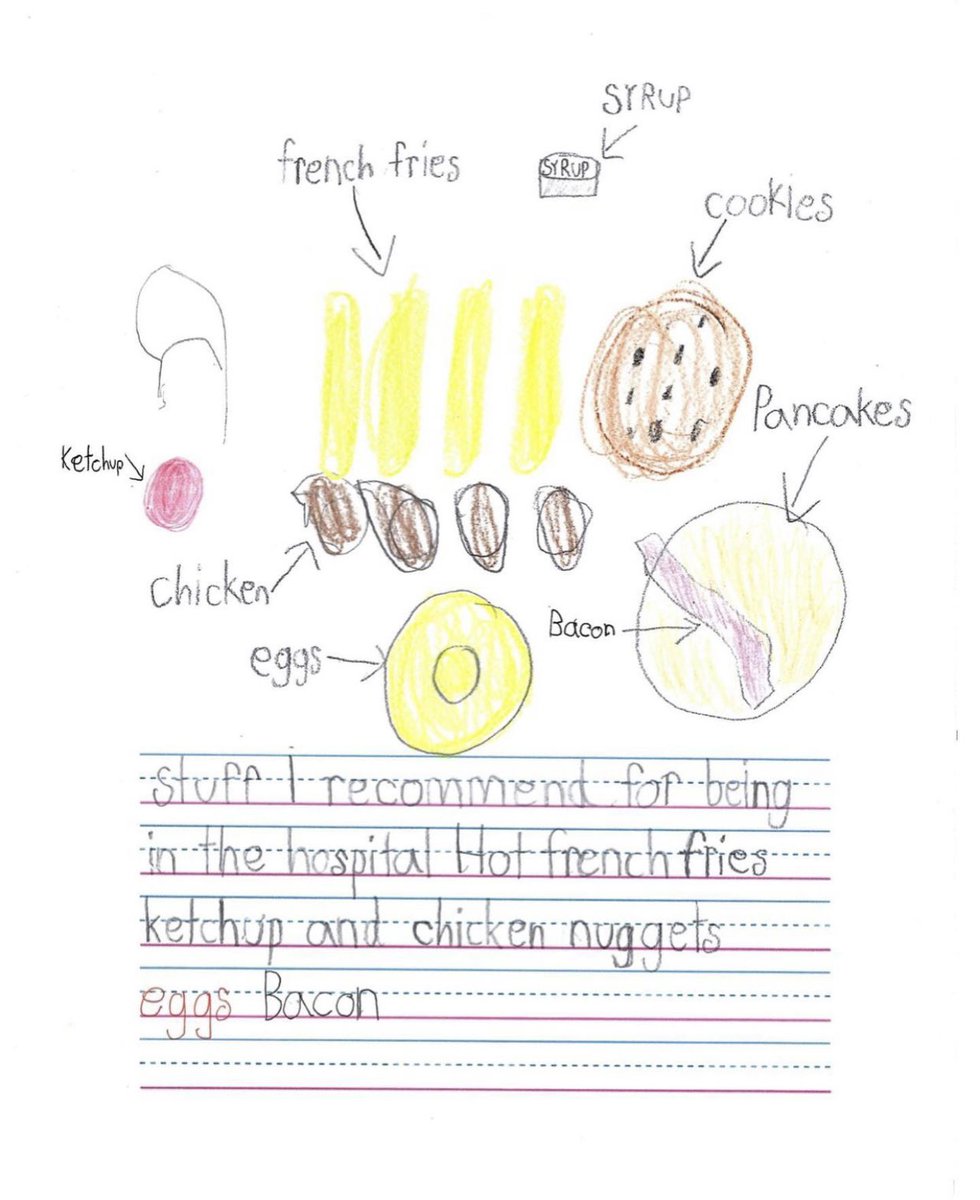 SYRUP
french fries
SYRUP
cookies
Pancakes
Ketchup
chicken
Bacon
eggs
stuff I recommend for being
in the hospital Hot french fries
ketchup and chicken nuggets
eggs Bacon